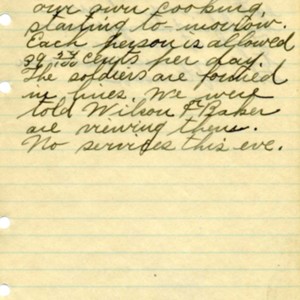 our own cooking,
starting to-morrow.
Each person is allowed
39 24/100 cents per day.
The soldiers are formed
in lines. We were
told Wilson & Baker
are viewing them.
No services this eve.